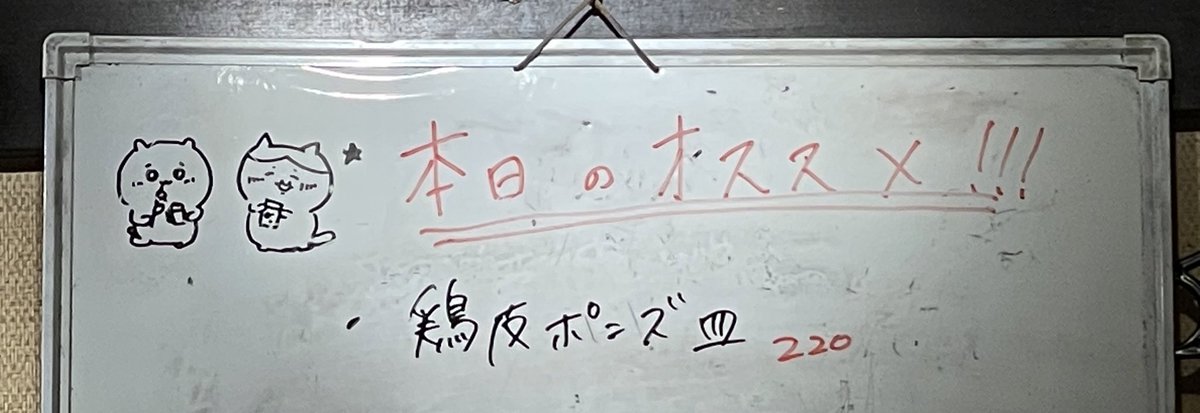 本日のオススメ!!!
・鶏皮ポンズ皿 220